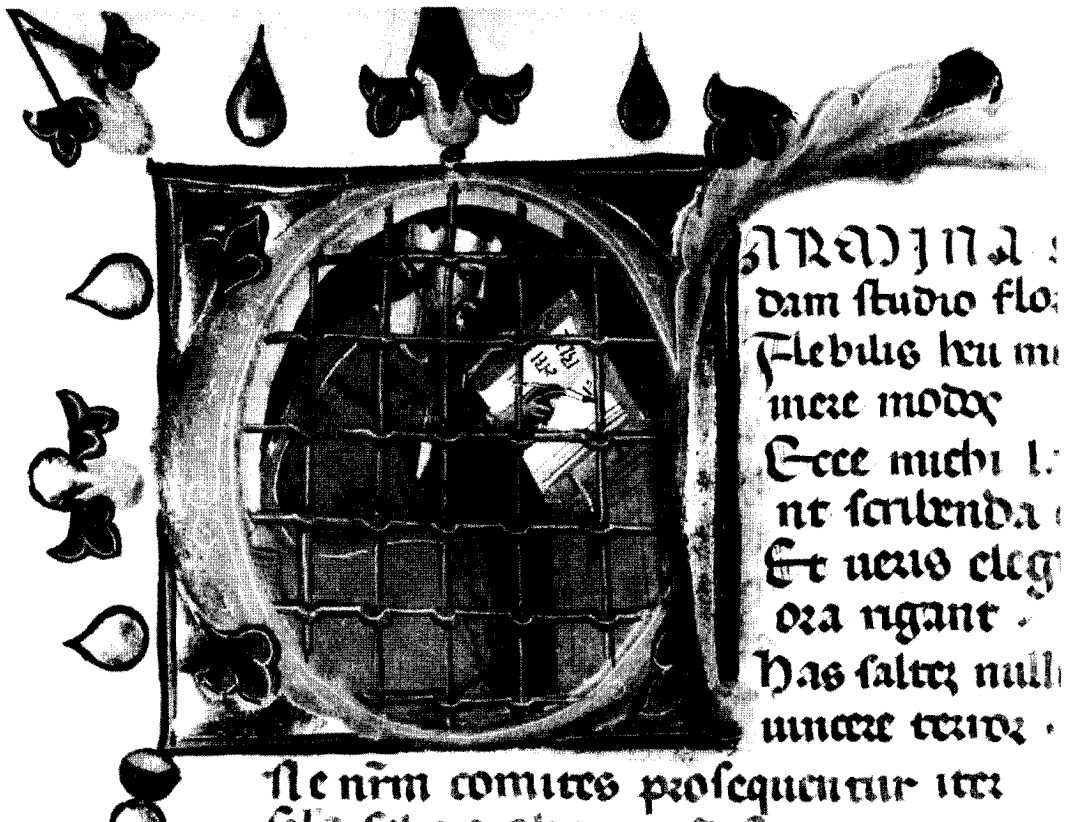 ARMINA
dam studio flo
Flebilis heu
mere modoꝝ
Ecce michi
nt scribenda
Et ueris eleg
ora rigant .
Has salteȝ null
uincere terror .
Ne nr̃m comites prosequentur iter